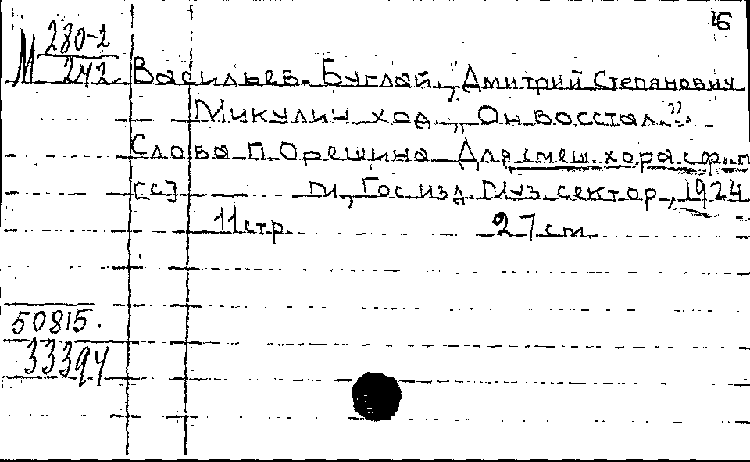 15
М 280-2
242
Васильев-Буглай, Дмитрий Степанович
Микулич ход „Он восстал".
Слова П. Орешина Для смеш. хора с ф.-п
[с] М, Гос изд. Муз. сектор, 1924
11 стр. 27 cm
50815.
33394